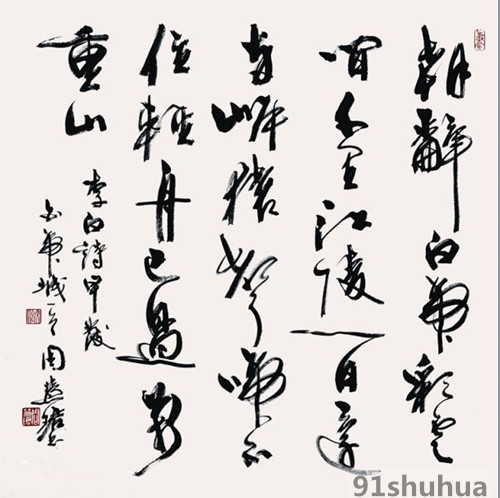 朝辭白帝彩雲
間千里江陵一日還
兩岸猿聲啼不
住輕舟已過萬
重山
李白詩早發
白帝城一首 周
91shuhua